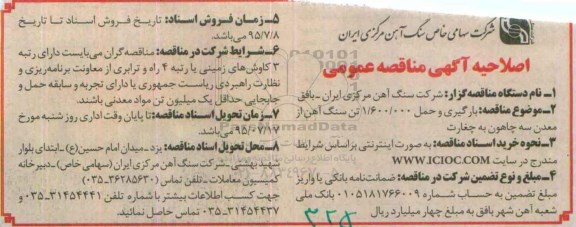 شرکت سهامی خاص سنگ آهن مرکزی ایران
اصلاحیه آگهی مناقصه عمومی
۱ـ نام دستگاه مناقصه گزار: شرکت سنگ آهن مرکزی ایران ـ بافق
۲ـ موضوع مناقصه: بارگیری و حمل ۱/۶۰۰/۰۰۰ تن سنگ آهن از
معدن سه چاهون به چغارت
۳ـ نحوه خرید اسناد مناقصه: به صورت اینترنتی براساس شرایط
مندرج در سایت WWW.ICIOC.COM
۴ـ مبلغ و نوع تضمین شرکت در مناقصه: ضمانت‌نامه بانکی یا واریز
مبلغ تضمین به حساب شماره ۰۱۰۵۱۸۱۷۶۶۰۰۹ بانک ملی
شعبه آهن شهر بافق به مبلغ چهار میلیارد ریال
۵ـ زمان فروش اسناد: تاریخ فروش اسناد تا تاریخ
۹۵/۷/۸ می‌باشد.
۶ـ شرایط شرکت در مناقصه: مناقصه‌گران می‌بایست دارای رتبه
۳ کاوش‌های زمینی یا رتبه ۴ راه و ترابری از معاونت برنامه‌ریزی و
نظارت راهبردی ریاست جمهوری یا دارای تجربه و سابقه حمل و
جابجایی حداقل یک میلیون تن مواد معدنی باشند.
۷ـ زمان تحویل اسناد مناقصه: تا پایان وقت اداری روز شنبه مورخ
۹۵/۰۷/۱۷ می‌باشد.
۸ـ محل تحویل اسناد مناقصه: یزد ـ میدان امام حسین(ع) ـ ابتدای بلوار
شهید بهشتی ـ شرکت سنگ آهن مرکزی ایران (سهامی خاص) ـ دبیرخانه
کمیسیون معاملات ـ تلفن تماس (۳۶۲۸۵۶۳۰ـ۰۳۵)
جهت کسب اطلاعات بیشتر با شماره تلفن ۳۱۴۵۴۴۴۱ـ۰۳۵ و
۳۱۴۵۴۴۳۷ـ۰۳۵ تماس حاصل نمائید.
۳۲۵